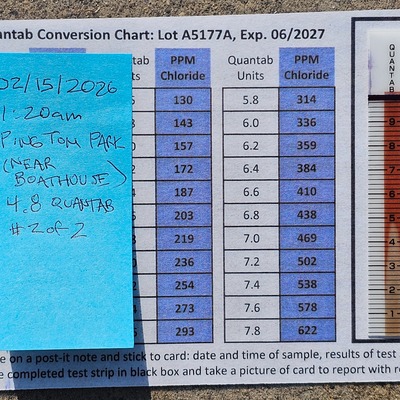 antab Conversion Chart: Lot A5177A, Exp. 06/2027
02/15/2026
1:20am
PING TOM PARK
(NEAR
BOATHOUSE)
4.8 QUANTAB
#2 of 2
PPM
Chloride
130
143
157
172
186
203
219
236
254
273
293
Quantab PPM
Units Chloride
5.8 314
6.0 336
6.2 359
6.4 384
6.6 410
6.8 438
7.0 469
7.2 502
7.4 538
7.6 578
7.8 622
QUANTAB
9
8
7
6
5
4
3
2
1
e on a post-it note and stick to card: date and time of sample, results of test
e completed test strip in black box and take a picture of card to report with re